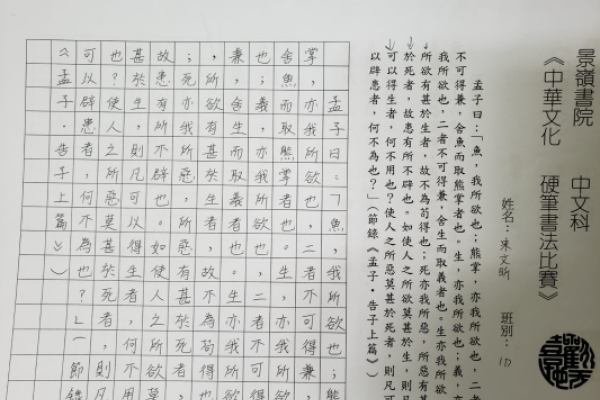 景嶺書院　中文科
《中華文化　硬筆書法比賽》
姓名：朱文昕　班別：1D
孟子曰：「魚，我所欲也；熊掌，亦我所欲也，二者
不可得兼，舍魚而取熊掌者也。生，亦我所欲也；義，亦
我所欲也，二者不可得兼，舍生而取義者也。生亦我所欲，
所欲有甚於生者，故不為苟得也；死亦我所惡，所惡有甚
於死者，故患有所不辟也。如使人之所欲莫甚於生，則凡
可以得生者，何不用也？使人之所惡莫甚於死者，則凡可
以辟患者，何不為也？」（節錄《孟子·告子上篇》）
孟子曰：「魚，我所欲也；熊
掌，亦我所欲也，二者不可得兼，
舍魚而取熊掌者也。生，亦我所欲
也；義，亦我所欲也，二者不可得
兼，舍生而取義者也。生亦我所欲
，所欲有甚於生者，故不為苟得也
；死亦我所惡，所惡有甚於死者，
故患有所不辟也。如使人之所欲莫
甚於生，則凡可以得生者，何不用
也？使人之所惡莫甚於死者，則凡
可以辟患者，何不為也？」（節錄
《孟子·告子上篇》）